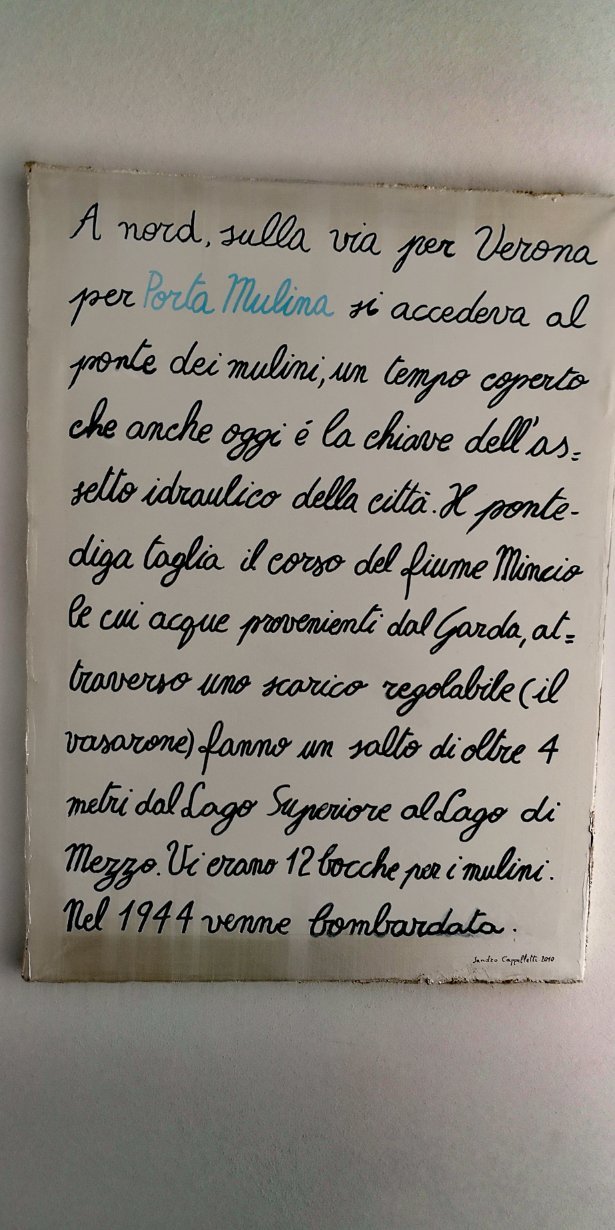 A nord, sulla via per Verona
per Porta Mulina si accedeva al
ponte dei mulini, un tempo coperto
che anche oggi é la chiave dell'as=
setto idraulico della città. Il ponte-
diga taglia il corso del fiume Mincio
le cui acque provenienti dal Garda, at=
traverso uno scarico regolabile (il
vasarone) fanno un salto di oltre 4
metri dal Lago Superiore al Lago di
Mezzo. Vi erano 12 bocche per i mulini.
Nel 1944 venne bombardata.
Sandro Cappelletti 2010